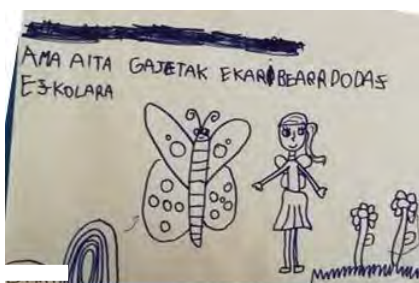 AMA AITA GAJETAK EKARI BEARR DODAS
EZKOLARA